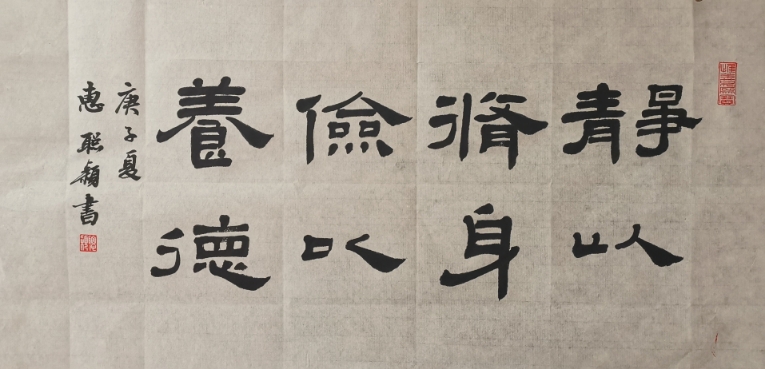 靜以
脩身
儉以
養德
庚子夏
惠聪颖書